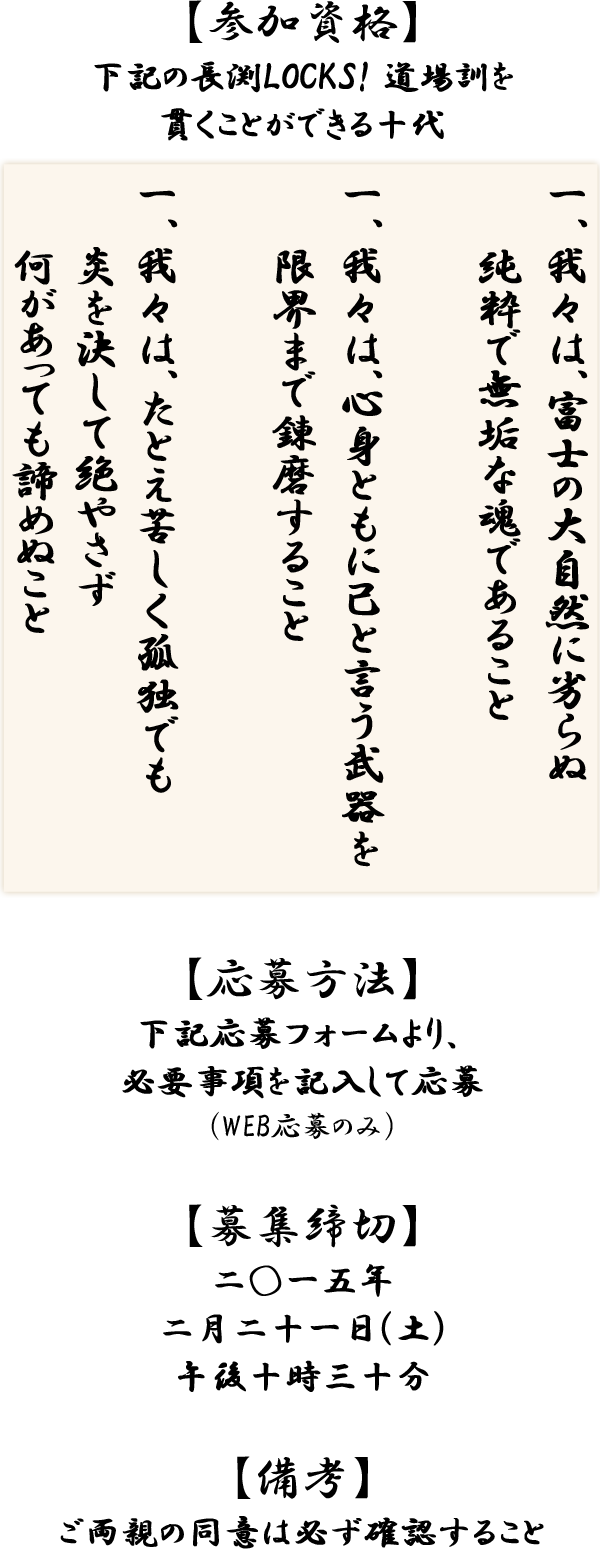 【参加資格】
下記の長渕LOCKS! 道場訓を
貫くことができる十代
一、我々は、富士の大自然に劣らぬ
純粋で無垢な魂であること
一、我々は、心身ともに己と言う武器を
限界まで錬磨すること
一、我々は、たとえ苦しく孤独でも
炎を決して絶やさず
何があっても諦めぬこと
【応募方法】
下記応募フォームより、
必要事項を記入して応募
(WEB応募のみ)
【募集締切】
二〇一五年
二月二十一日(土)
午後十時三十分
【備考】
ご両親の同意は必ず確認すること